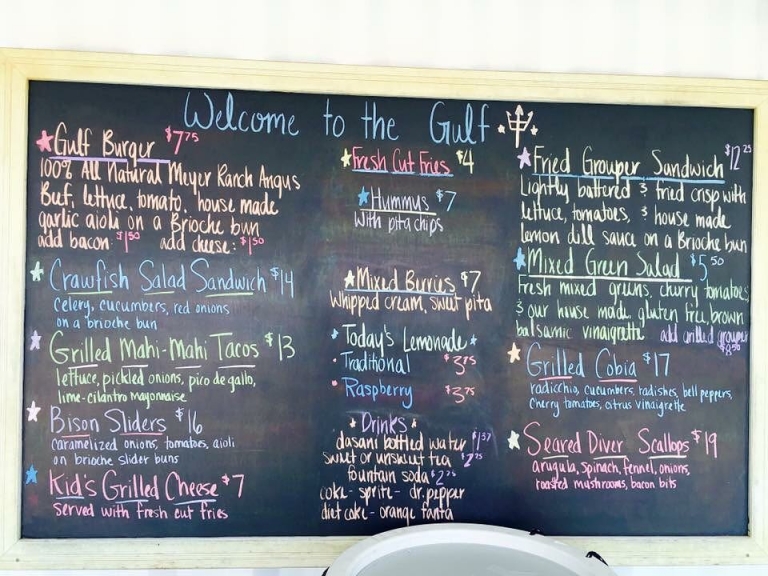 Welcome to the Gulf
Gulf Burger $7.75
100% All Natural Meyer Ranch Angus
Beef, lettuce, tomato, house made
garlic aioli on a Brioche bun
add bacon: $1.50 add cheese: $1.50
Crawfish Salad Sandwich $14
celery, cucumbers, red onions
on a brioche bun
Grilled Mahi-Mahi Tacos $13
lettuce, pickled onions, pico de gallo,
lime-cilantro mayonnaise
Bison Sliders $16
caramelized onions, tomatoes, aioli
on brioche slider buns
Kid's Grilled Cheese $7
Served with fresh cut fries
Fresh Cut Fries $4
Hummus $7
with pita chips
Mixed Berries $7
Whipped cream, sweet pita
Today's Lemonade
Traditional $3.75
Raspberry $3.75
Drinks
dasani bottled water $1.57
sweet or unsweet tea $2.75
fountain soda $2.75
coke - sprite - dr. pepper
diet coke - orange fanta
Fried Grouper Sandwich $12.25
Lightly battered & fried crisp with
lettuce, tomatoes, & house made
lemon dill sauce on a Brioche bun
Mixed Green Salad $5.50
Fresh mixed greens, cherry tomatoes,
& our house made gluten free brown
balsamic vinaigrette add grilled grouper
$8.50
Grilled Cobia $17
radicchio, cucumbers, radishes, bell peppers,
Cherry tomatoes, citrus vinaigrette
Seared Diver Scallops $19
arugula, spinach, fennel, onions,
roasted mushrooms, bacon bits